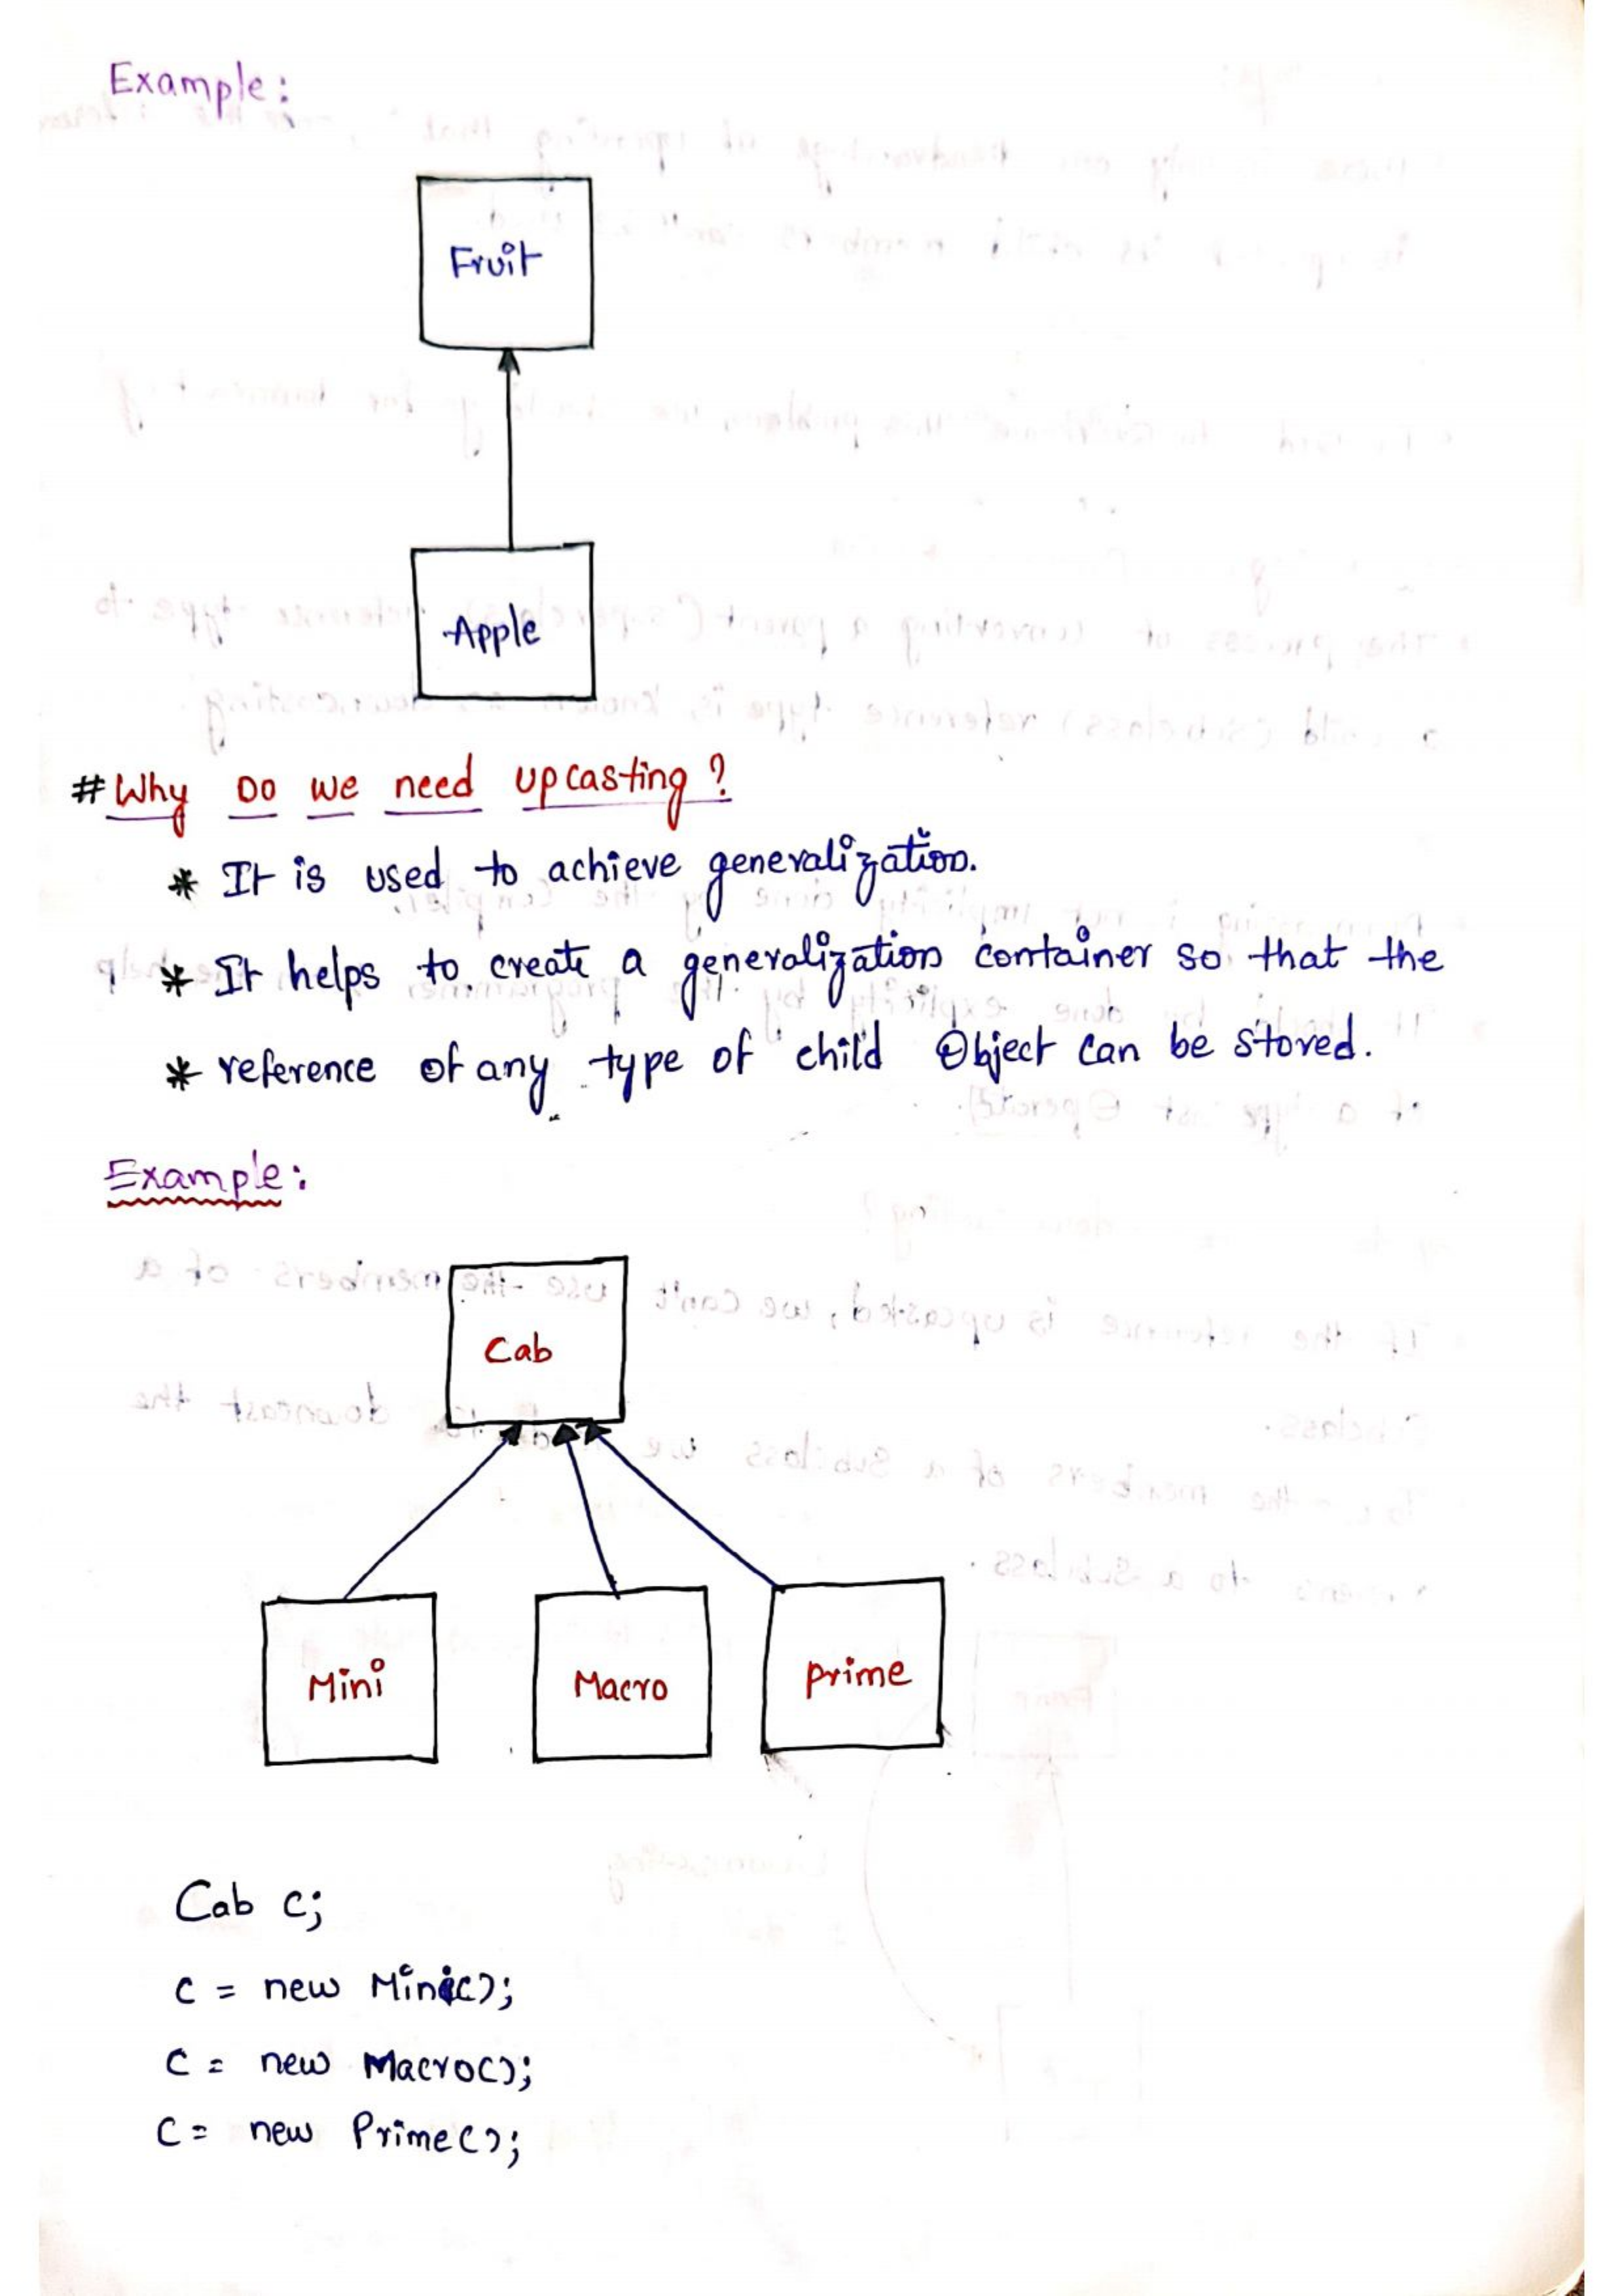 Example:
Fruit
Apple
# Why Do we need upcasting?
* It is used to achieve generalization.
* It helps to create a generalization container so that the
* reference of any type of child Object can be stored.
Example:
Cab
Mini Macro prime
Cab c;
c = new Mini();
c = new Macro();
c = new Prime();